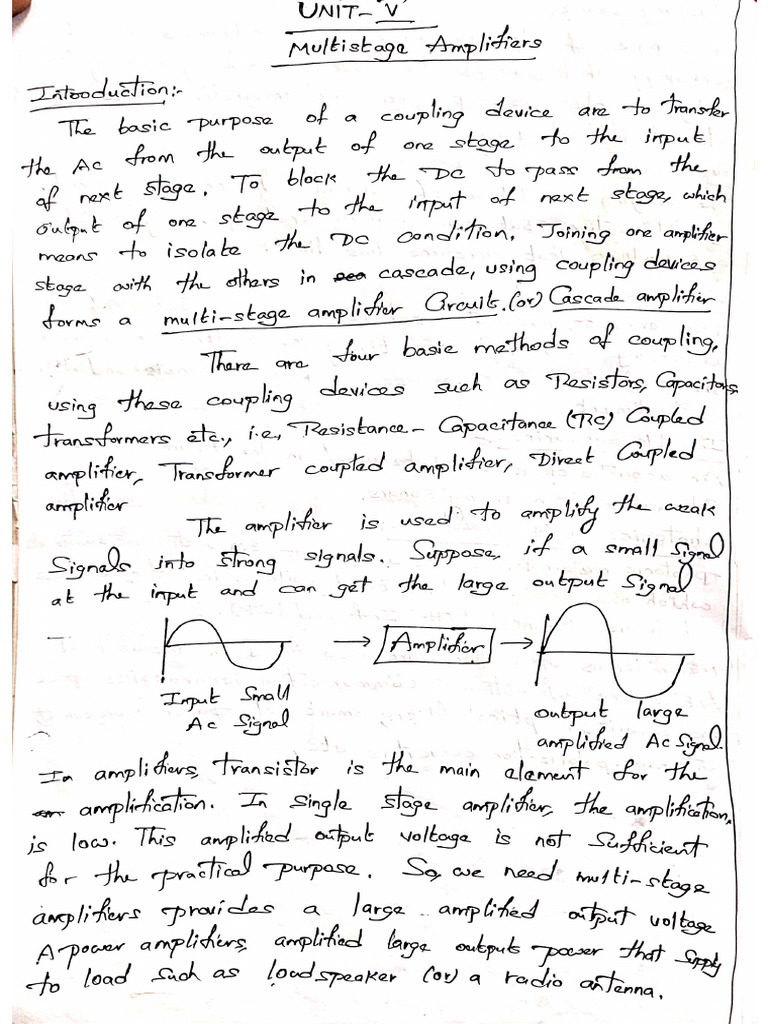 UNIT-V
Multistage Amplifiers
Introduction:-
The basic purpose of a coupling device are to transfer
the AC from the output of one stage to the input
of next stage. To block the DC to pass from the
output of one stage to the input of next stage, which
means to isolate the DC condition. Joining one amplifier
stage with the others in cascade, using coupling devices
forms a multi-stage amplifier Circuits.(or) Cascade amplifier
There are four basic methods of coupling,
using these coupling devices such as Resistors, Capacitors,
transformers etc., i.e., Resistance-Capacitance (RC) Coupled
amplifier, Transformer coupled amplifier, Direct Coupled
amplifier
The amplifier is used to amplify the weak
Signals into strong signals. Suppose, if a small signal
at the input and can get the large output Signal
Amplifier
Input Small
Ac Signal
output large
amplified Ac Signal.
In amplifiers, transistor is the main element for the
amplification. In single stage amplifier, the amplification,
is low. This amplified output voltage is not sufficient
for the practical purpose. So, we need multi-stage
amplifiers provides a large amplified output voltage
A power amplifiers, amplified large output power that supply
to load such as loudspeaker (or) a radio antenna.